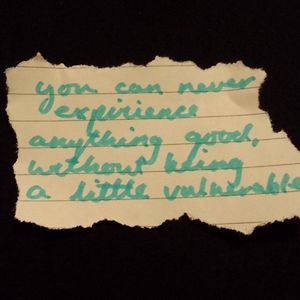 you can never
expirience
anything good,
without being
a little vulnerable